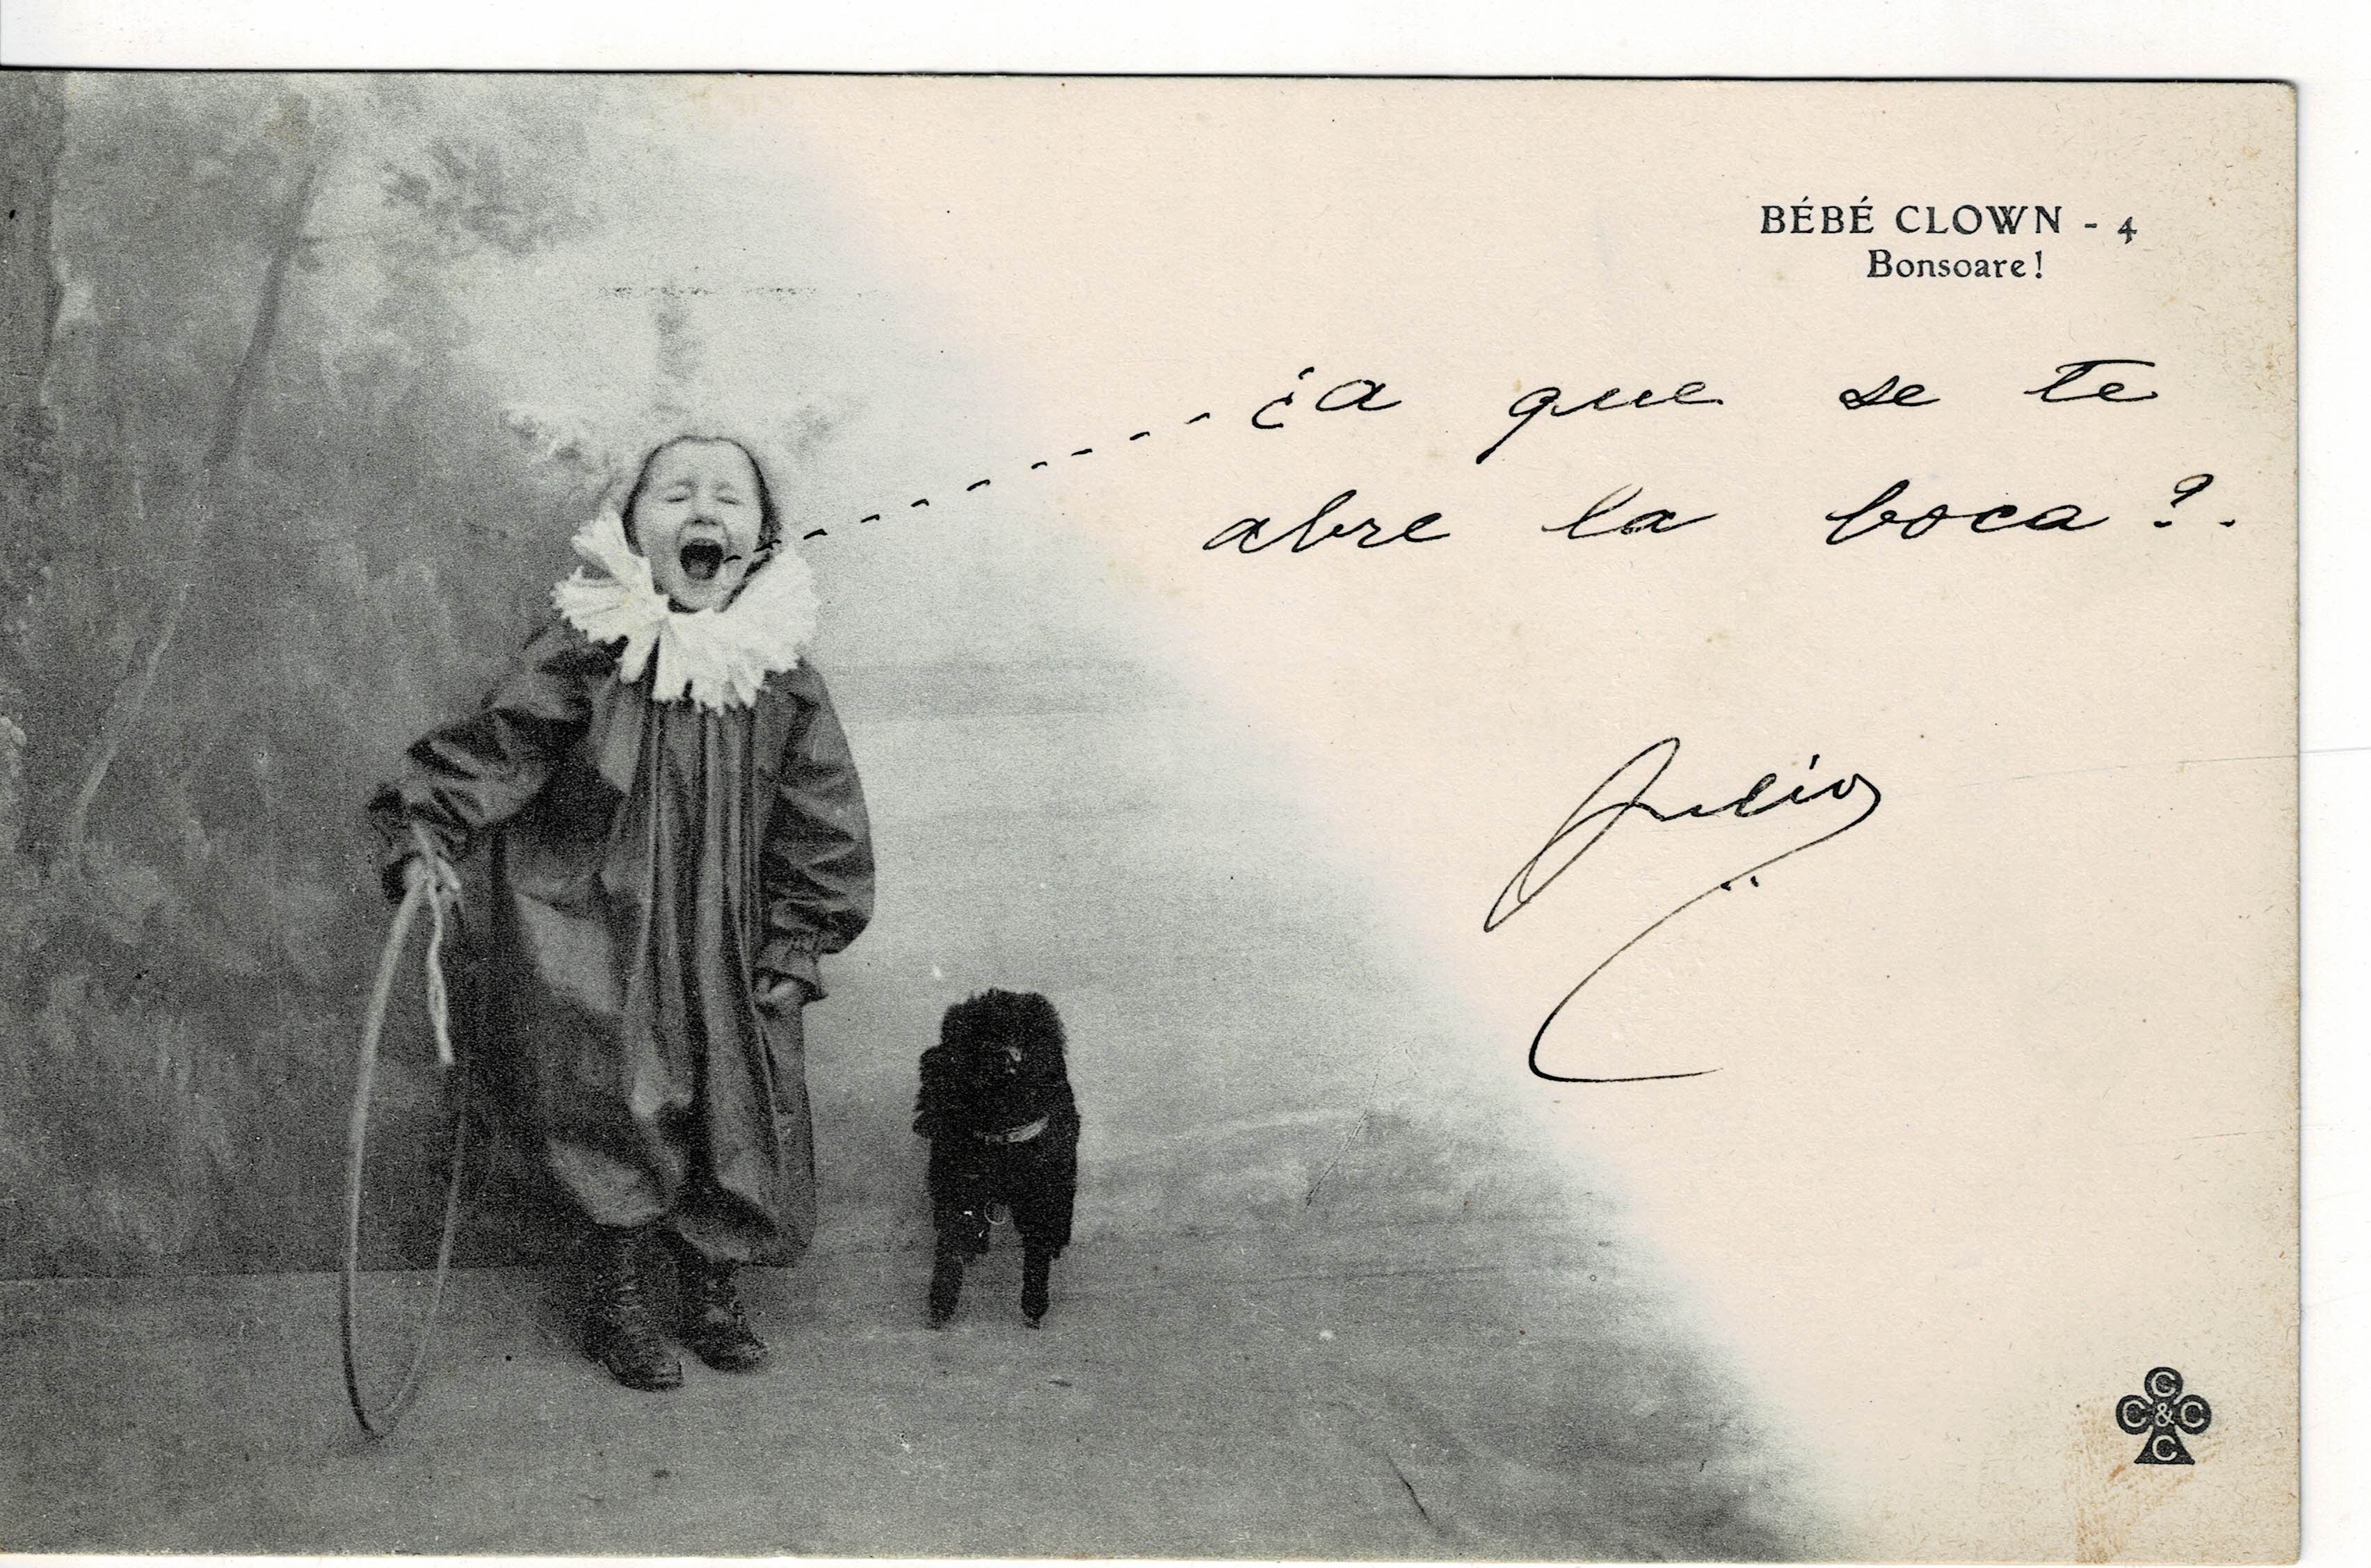 BÉBÉ CLOWN - 4
Bonsoare!
¿a que se te
abre la boca?.
Julio
C
C & C
C